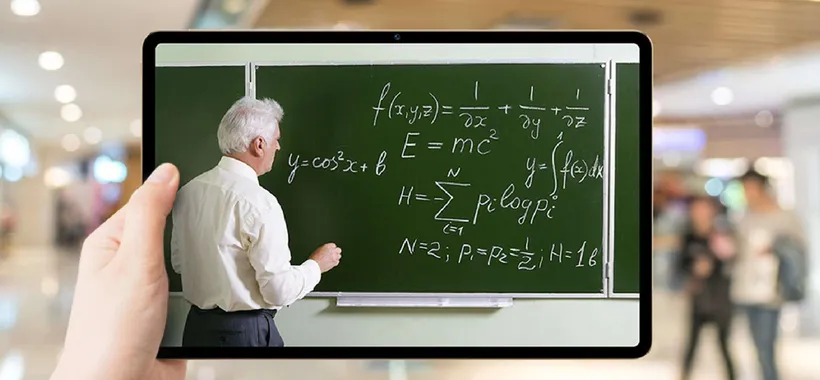 f(x,y,z) = 1/∂x + 1/∂y + 1/∂z
E = mc²
y=cos²x+b
y=∫₀¹f(x)dx
H=-∑ᵢ₌₁ᴺ pᵢlogpᵢ
N=2; p₁=p₂=1/2; H=1b